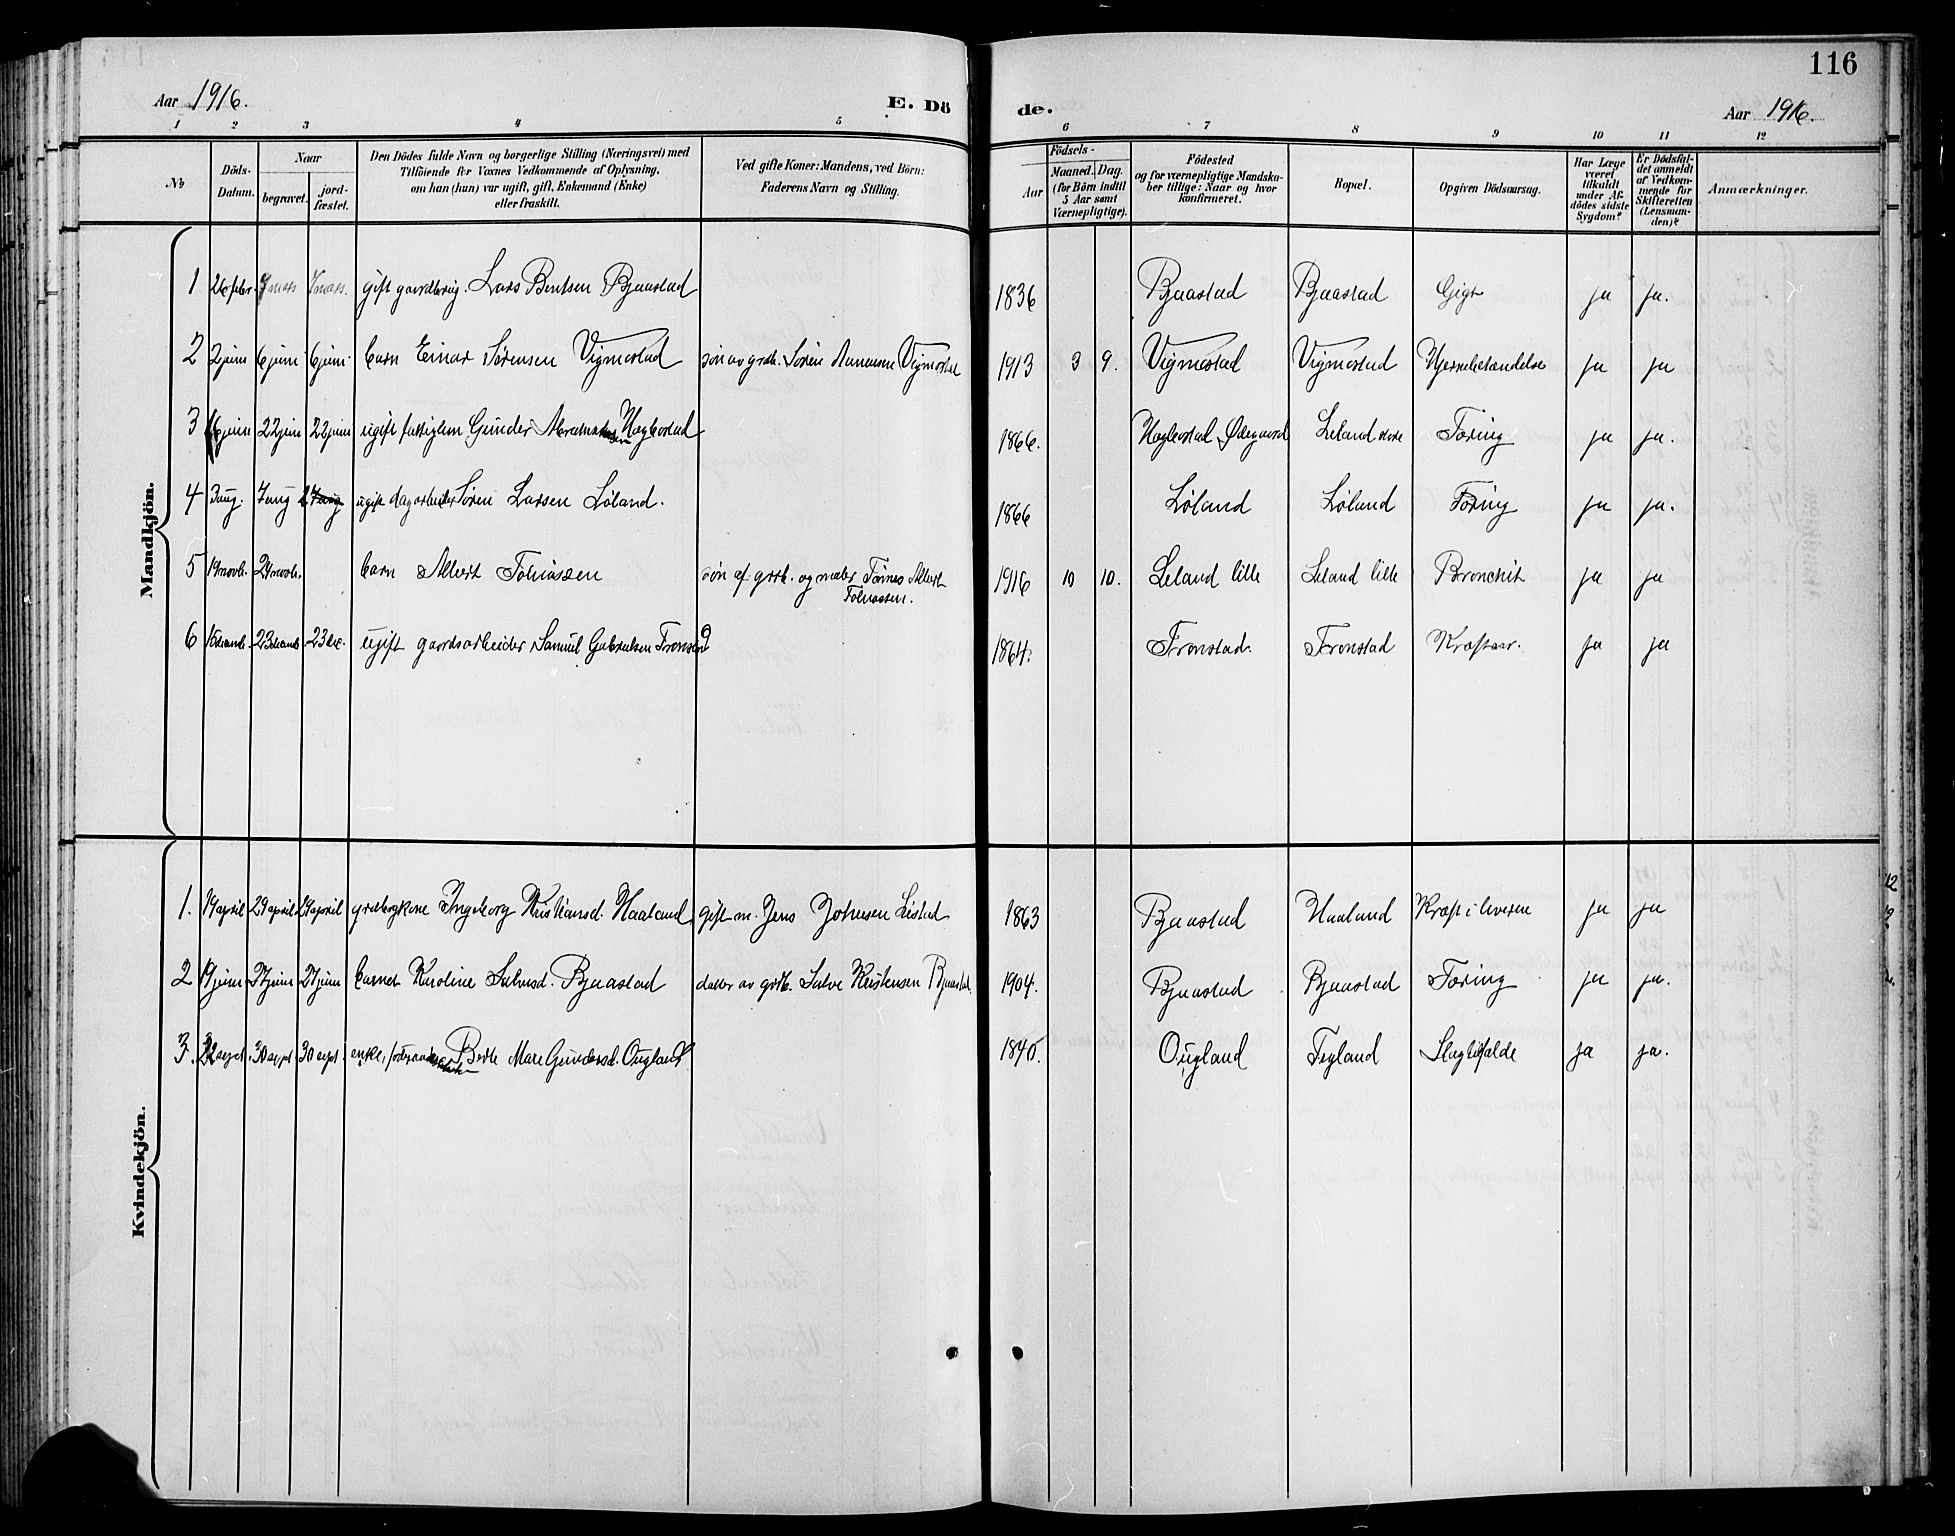 116
Aar 1916.
E. Dö
de.
Aar 1916.
1 2 3 4 5 6 7 8 9 10 11 12
No
Döds-Datum.
Naar
begravet.
jord-fæstet.
Den Dödes fulde Navn og borgerlige Stilling (Næringsvei) med
Tilföiende for Voxnes Vedkommende af Oplysning,
om han (hun) var ugift, gift, Enkemand (Enke)
eller fraskilt.
Ved gifte Koner: Mandens, ved Börn:
Faderens Navn og Stilling.
Födsels-
Aar
Maaned. Dag.
(for Börn indtil
5 Aar samt
Værnepligtige).
Födested
og for værnepligtige Mandska-
ber tillige: Naar og hvor
konfirmeret.
Bopæl.
Opgiven Dödsaarsag.
Har Læge
været
tilkaldt
under Af-
dödes sidste
Sygdom?
Er Dödsfal-
det anmeldt
af Vedkom-
mende for
Skifteretten
(Lensman-
den)?
Anmærkninger.
Mandkjön.
1 26 febr. 7 mars 7 mars. gift gaardbrug. Lars Bentsen Bjaastad 1836 Bjaastad Bjaastad Gigt ja ja.
2 2 juni 6 juni 6 juni barn Einar Sørensen Vigmostad søn av grdb. Søren Aanensen Vigmostad 1913 3 9. Vigmostad Vigmostad Hjernebetændelse ja ja
3 16 juni 22 juni 22 juni ugift fattiglem Gunder Hægbostad 1866. Hægbostad Ødegaard Leland store Tæring ja ja.
4 3 aug. 7 aug 7 aug ugift dagarbeider Søren Larsen Løland. 1866 Løland Løland Tæring ja ja.
5 19 novb. 29 novb. barn Albert Tobiassen søn af grdb. og maler Tønnes Albert
Tobiassen. 1916 10 10. Leland lille Leland lille Bronchit ja ja
6 15 decemb. 23 decemb. 23 dec. ugift gaardsarbeider Samuel Gabrielsen Tronstad 1864. Tronstad. Tronstad Kræft ja ja
Kvindekjön.
1. 19 april 29 april 29 april grdbrgkone Ingeborg Kristiansd. Haaland gift m. Jens Johnsen 1863 Bjaastad Haaland Kræft i leveren ja ja
2 19 juni 27 juni 27 juni barnet Karoline Salvesd. Bjaastad datter av grdb. Salve Kristensen Bjaastad. 1904. Bjaastad Bjaastad Tæring ja ja.
3. 22 sept 30 sept 30 sept enke, Berte Mare Gundersd. Ougland 1840. Ougland Fegland Slagtilfælde ja ja.